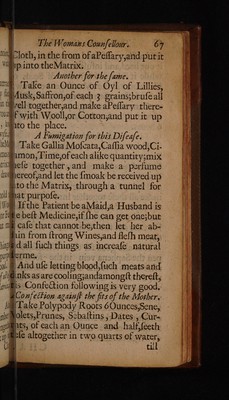 The Womans Counsellour. 67
Cloth, in the from of aPessary,and put it
up into theMatrix.
Another for the same.
Take an Ounce of Oyl of Lillies,
Musk,Saffron,of each 3 grains;bruse all
well together,and make aPessary there-
of with Wooll,or Cotton,and put it up
into the place.
A Fumigation for this Disease.
Take Gallia Moscata,Cassia wood,Ci-
amon,Time,of each alike quantity;mix
these together , and make a perfume
hereof,and let the smoak be received up
into the Matrix, through a tunnel for
that purpose.
If the Patient be aMaid,a Husband is
the best Medicine,if she can get one;but
in case that cannot be,then let her ab-
stain from strong Wines,and flesh meat,
and all such things as increase natural
sperme.
And use letting blood,such meats and
drinks as are cooling;andamongst therest,
this Confection following is very good.
Confection against the fits of the Mother.
Take Polypody Roots 6Ounces,Sene,
Violets,Prunes, Sebastins , Dates , Cur-
rants, of each an Ounce and half,seeth
these altogether in two quarts of water,
till